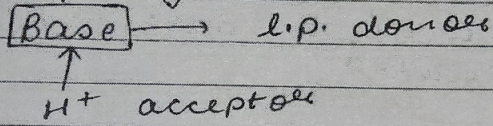 Base → l.p. donor
H+ acceptor